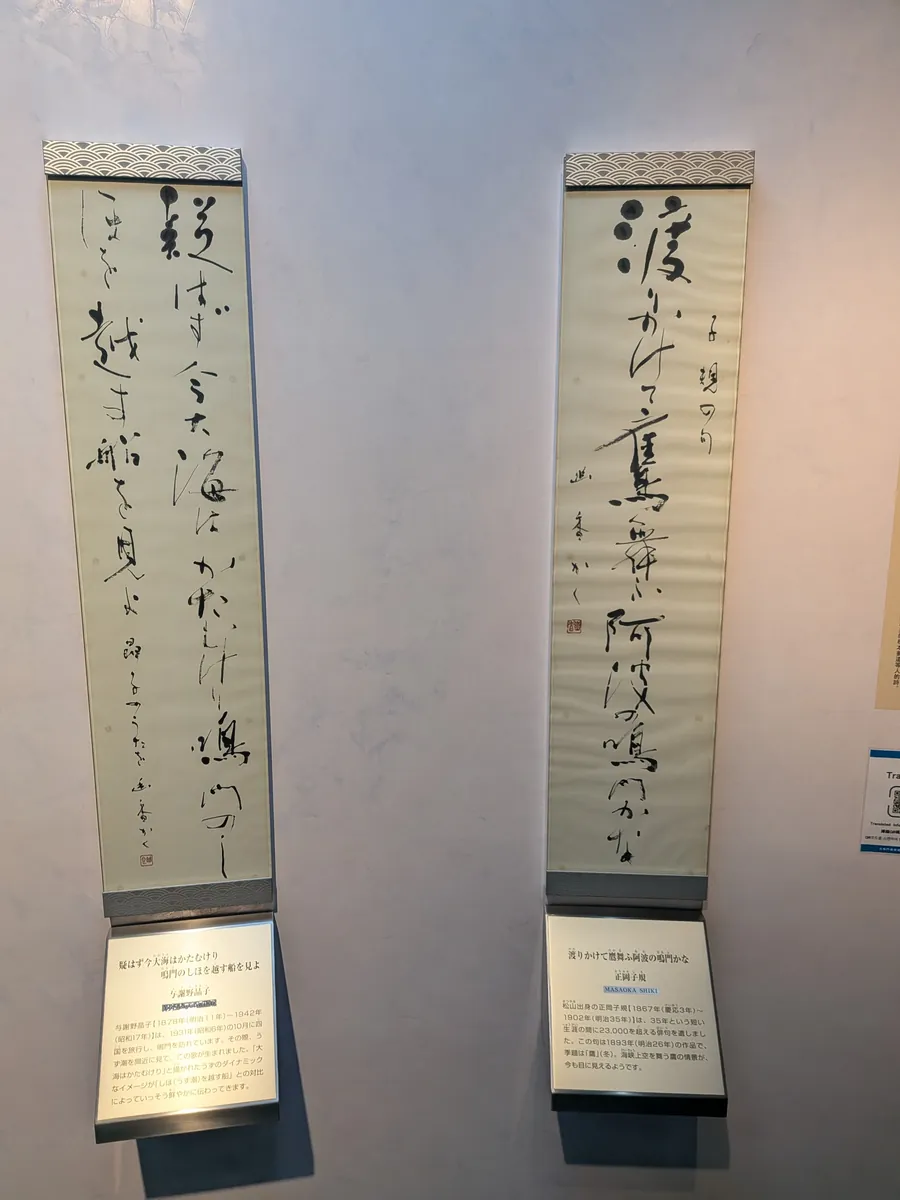 疑はず今大海はかたむけり鳴門のし
ほを越す船を見よ 晶子のうたを 幽香かく
子規の句
渡りかけて鷹舞ふ阿波の鳴門かな
幽香かく
疑はず今大海はかたむけり
鳴門のしほを越す船を見よ
与謝野晶子
与謝野晶子【1878年(明治11年)~1942年
(昭和17年)】は、1931年(昭和6年)の10月に四
国を旅行し、鳴門を訪れています。その際、う
ず潮を間近に見て、この歌が生まれました。「大
海はかたむけり」と描かれたうずのダイナミック
なイメージが「しほ(うず潮)を越す船」との対比
によっていっそう鮮やかに伝わってきます。
渡りかけて鷹舞ふ阿波の鳴門かな
正岡子規
MASAOKA SHIKI
松山出身の正岡子規【1867年(慶応3年)~
1902年(明治35年)】は、35年という短い
生涯の間に23,000を超える俳句を遺しまし
た。この句は1893年(明治26年)の作品で、
季題は「鷹」(冬)。海峡上空を舞う鷹の情景が、
今も目に見えるようです。
Tra